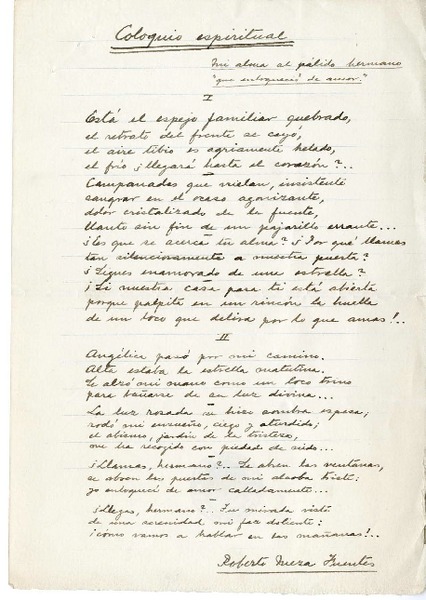 Coloquio espiritual
Mi alma al pálido hermano
"que enloqueció de amor."
I
Está el espejo familiar quebrado,
el retrato del frente se cayó,
el aire tibio es agriamente helado,
el frío ¿llegará hasta el corazón?..
Campanadas que vielan, insistente
sangrar en el ocaso agonizante,
dolor cristalizado de la fuente,
llanto sin fin de un pajarillo errante...
¿Es que se acerca tu alma? ¿Por qué llamas
tan silenciosamente a nuestra puerta?
¿Sigues enamorado de una estrella?
¡Si nuestra casa para ti está abierta
porque palpita en un rincón la huella
de un loco que delira por lo que amas!..
II
Angélica pasó por mi camino.
Alta estaba la estrella matutina.
Se alzó mi mano como un loco trino
para bañarse de su luz divina...
La luz rosada se hizo sombra espesa;
rodó mi ensueño, ciego y aturdido;
el abismo, jardín de la tristeza,
me ha recogido con piedad de nido...
¿Llamas, hermano?.. Se abren las ventanas,
se abren las puertas de mi alcoba triste:
yo enloquecí de amor calladamente...
¿Llegas, hermano?.. Tu mirada viste
de una serenidad mi faz doliente:
¡cómo vamos a hablar en las mañanas!..
Roberto Meza Fuentes